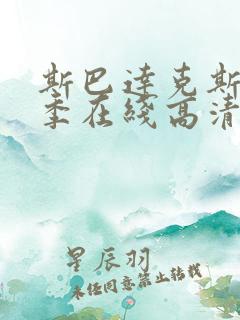 斯巴達克斯
季在綫高清
星辰羽
未经同意禁止转载